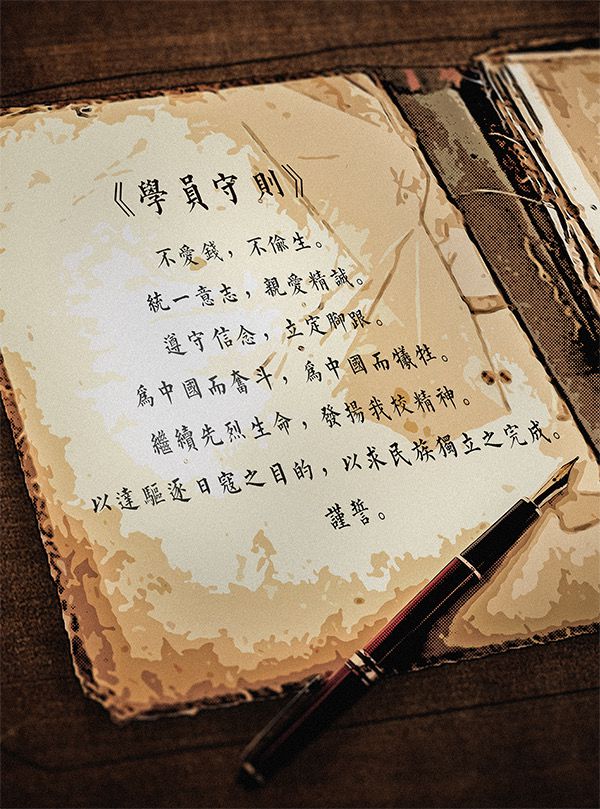 《學員守則》
不愛錢，不偷生。
統一意志，親愛精誠。
遵守信念，立定腳跟。
為中國而奮斗，為中國而犧牲。
繼續先烈生命，發揚我校精神。
以達驅逐日寇之目的，以求民族獨立之完成。
謹誓。